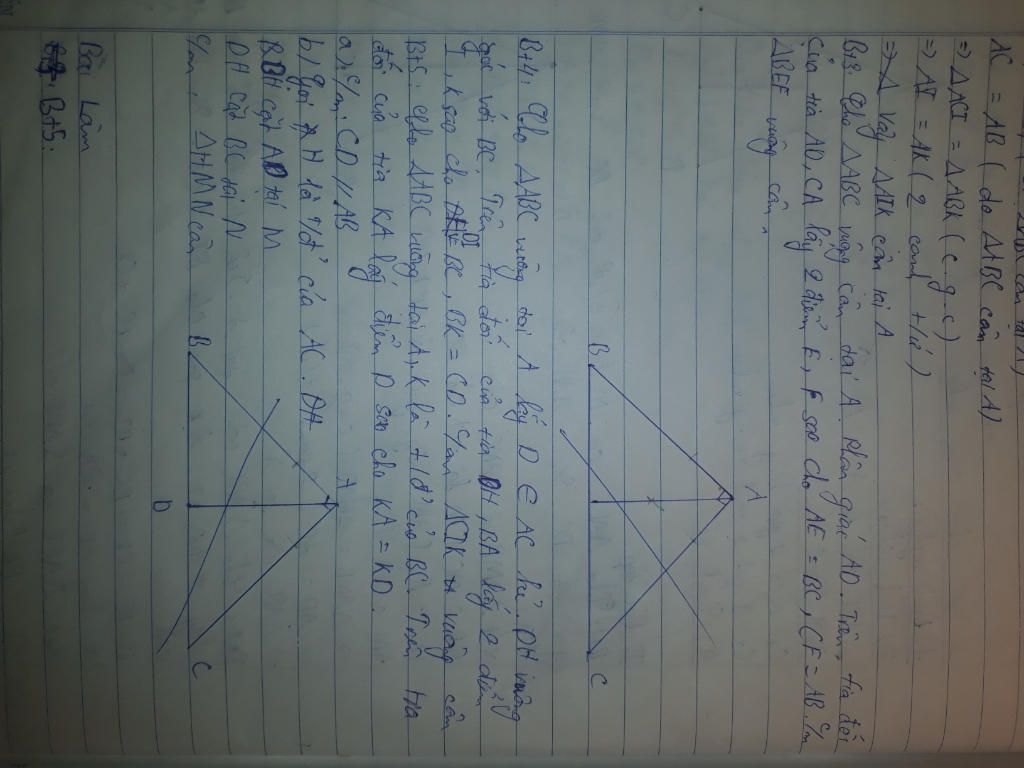 AC = AB ( do ΔABC cân tại A)
=> ΔACI = ΔABK ( c.g.c)
=> AI = AK ( 2 cạnh t/ứ )
=> Δ Vậy ΔAIK cân tại A
Bt3: Cho ΔABC vuông cân tại A. Phân giác AD. Trên tia đối
của tia AD, CA lấy 2 điểm E, F sao cho AE = BC, CF = AB. C/m
ΔBEF vuông cân.
A
B
C
Bt4: Cho ΔABC vuông tại A lấy D ∈ AC kẻ DH vuông
góc với BC. Trên tia đối của tia DH, BA lấy 2 điểm
I, K sao cho DI = BC, BK = CD. C/m ΔCIK vuông cân
Bt5: Cho ΔABC vuông tại A, K là t/đ' của BC. Trên tia
đối của tia KA lấy điểm D sao cho KA = KD.
a, C/m: CD // AB
b, Gọi H là t/đ' của AC. DH
BH cắt AD tại M
DH cắt BC tại N
C/m, ΔHMN cân
A
B
D
C
Bài Làm
Bt5.